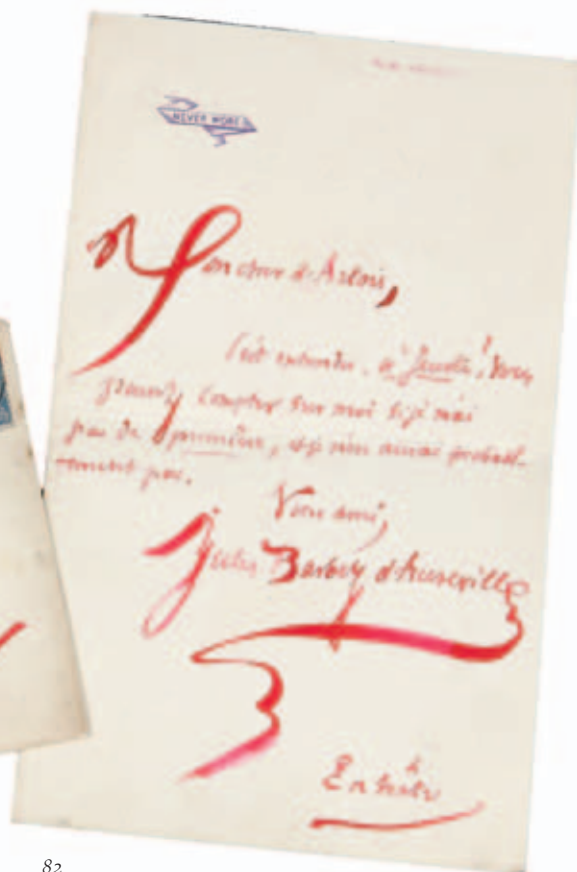 NEVER MORE
Mon cher d'Artois,
C'est entendu, à Jeudi! Vous
pouvez compter sur moi si je n'ai
pas de première, et je n'en aurai probable-
ment pas.
Votre ami,
Jules Barbey d'Aurevilly
En hâte
82